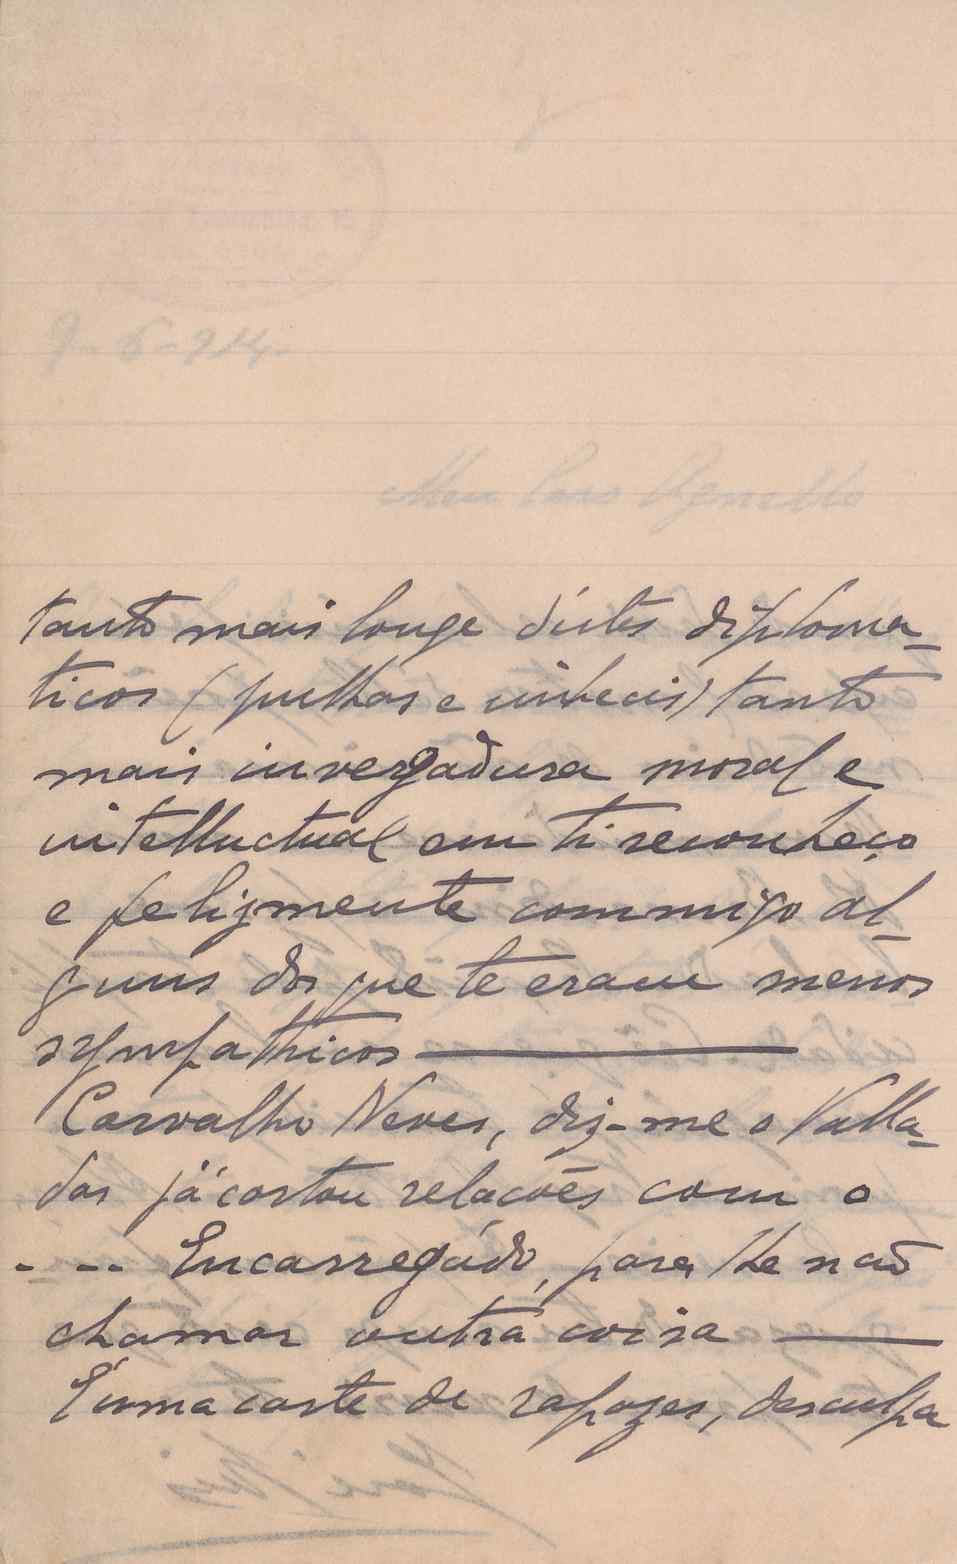 9-6-914.
Meu Caro Agnello
tanto mais longe d'istes diploma-
ticos (pulhas e imbecis) tanto
mais invergadura moral e
intelluctual em ti reconheço
e felizmente commigo al-
guns dos que te eram menos
sympathicos ———
Carvalho Neves, diz-me o Valla-
das já cortou relacões com o
- -- Encarregádo, para lhe não
chamar outra coisa ———
É uma corte de rapozes, desculpa